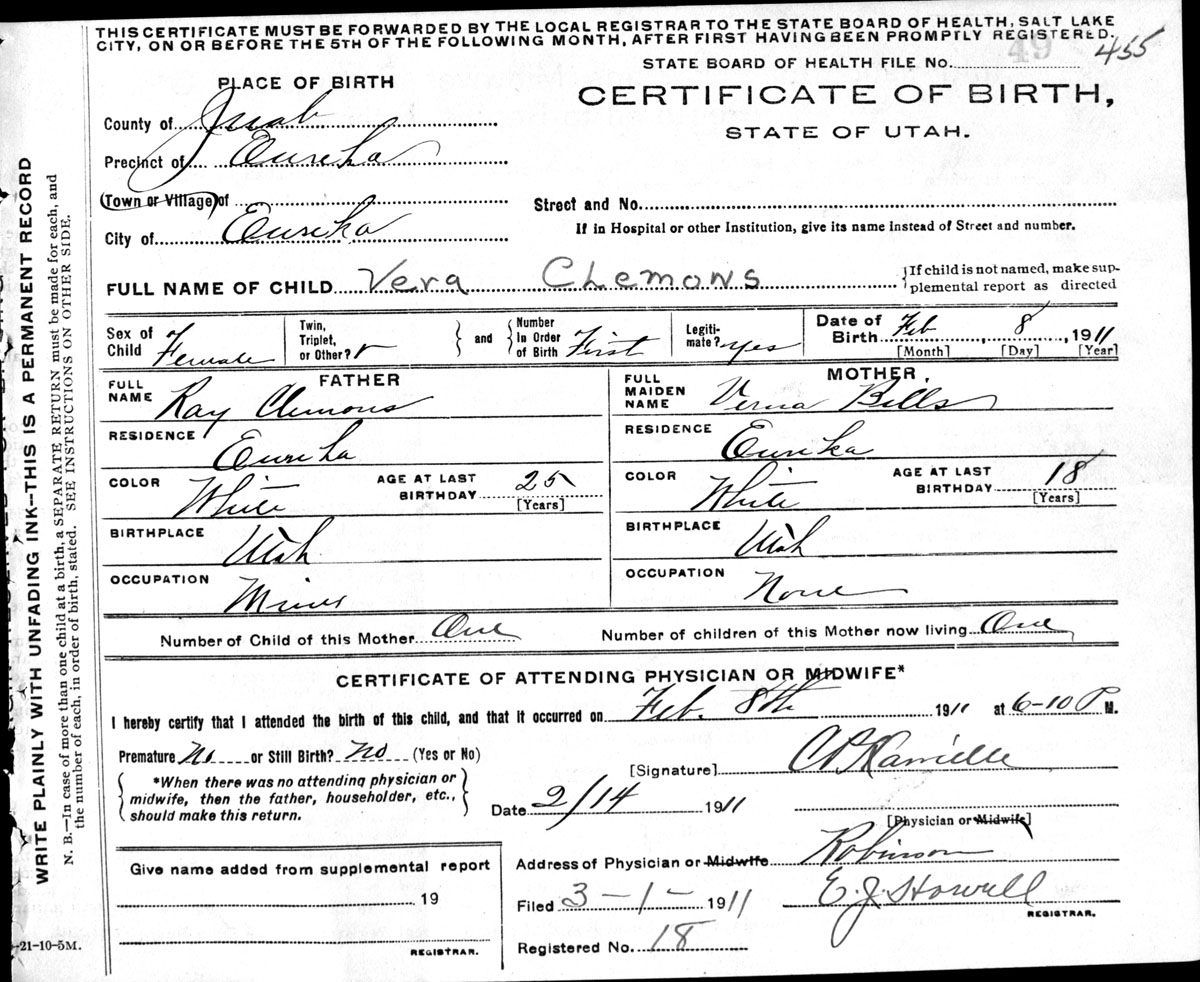 THIS CERTIFICATE MUST BE FORWARDED BY THE LOCAL REGISTRAR TO THE STATE BOARD OF HEALTH, SALT LAKE
CITY, ON OR BEFORE THE 5TH OF THE FOLLOWING MONTH, AFTER FIRST HAVING BEEN PROMPTLY REGISTERED.
49 455
STATE BOARD OF HEALTH FILE No.
PLACE OF BIRTH
CERTIFICATE OF BIRTH,
STATE OF UTAH.
County of Juab
Precinct of Eureka
(Town or Village) of
City of Eureka
Street and No.
If in Hospital or other Institution, give its name instead of Street and number.
FULL NAME OF CHILD Vera Clemons
{If child is not named, make sup-
plemental report as directed
Sex of Child Female
Twin, Triplet, or Other?
and
Number In Order of Birth First
Legiti-mate? yes
Date of Birth Feb 8, 1911
[Month] [Day] [Year]
FATHER
FULL NAME Ray Clemons
RESIDENCE Eureka
COLOR White AGE AT LAST BIRTHDAY 25 [Years]
BIRTHPLACE Utah
OCCUPATION Miner
MOTHER
FULL MAIDEN NAME Verna Bills
RESIDENCE Eureka
COLOR White AGE AT LAST BIRTHDAY 18 [Years]
BIRTHPLACE Utah
OCCUPATION None
Number of Child of this Mother One Number of children of this Mother now living One
CERTIFICATE OF ATTENDING PHYSICIAN OR MIDWIFE*
I hereby certify that I attended the birth of this child, and that it occurred on Feb. 8th 1911 at 6-10 P M.
Premature No or Still Birth? No (Yes or No)
*When there was no attending physician or
midwife, then the father, householder, etc.,
should make this return.
[Signature]
Date 2/14 1911
[Physician or Midwife]
Address of Physician or Midwife Robinson
Filed 3-1- 1911 E. J. Howell
REGISTRAR.
Registered No. 18
Give name added from supplemental report
19
REGISTRAR.
WRITE PLAINLY WITH UNFADING INK--THIS IS A PERMANENT RECORD
N. B.—In case of more than one child at a birth, a SEPARATE RETURN must be made for each, and
the number of each, in order of birth, stated. SEE INSTRUCTIONS ON OTHER SIDE.
-21-10-5M.